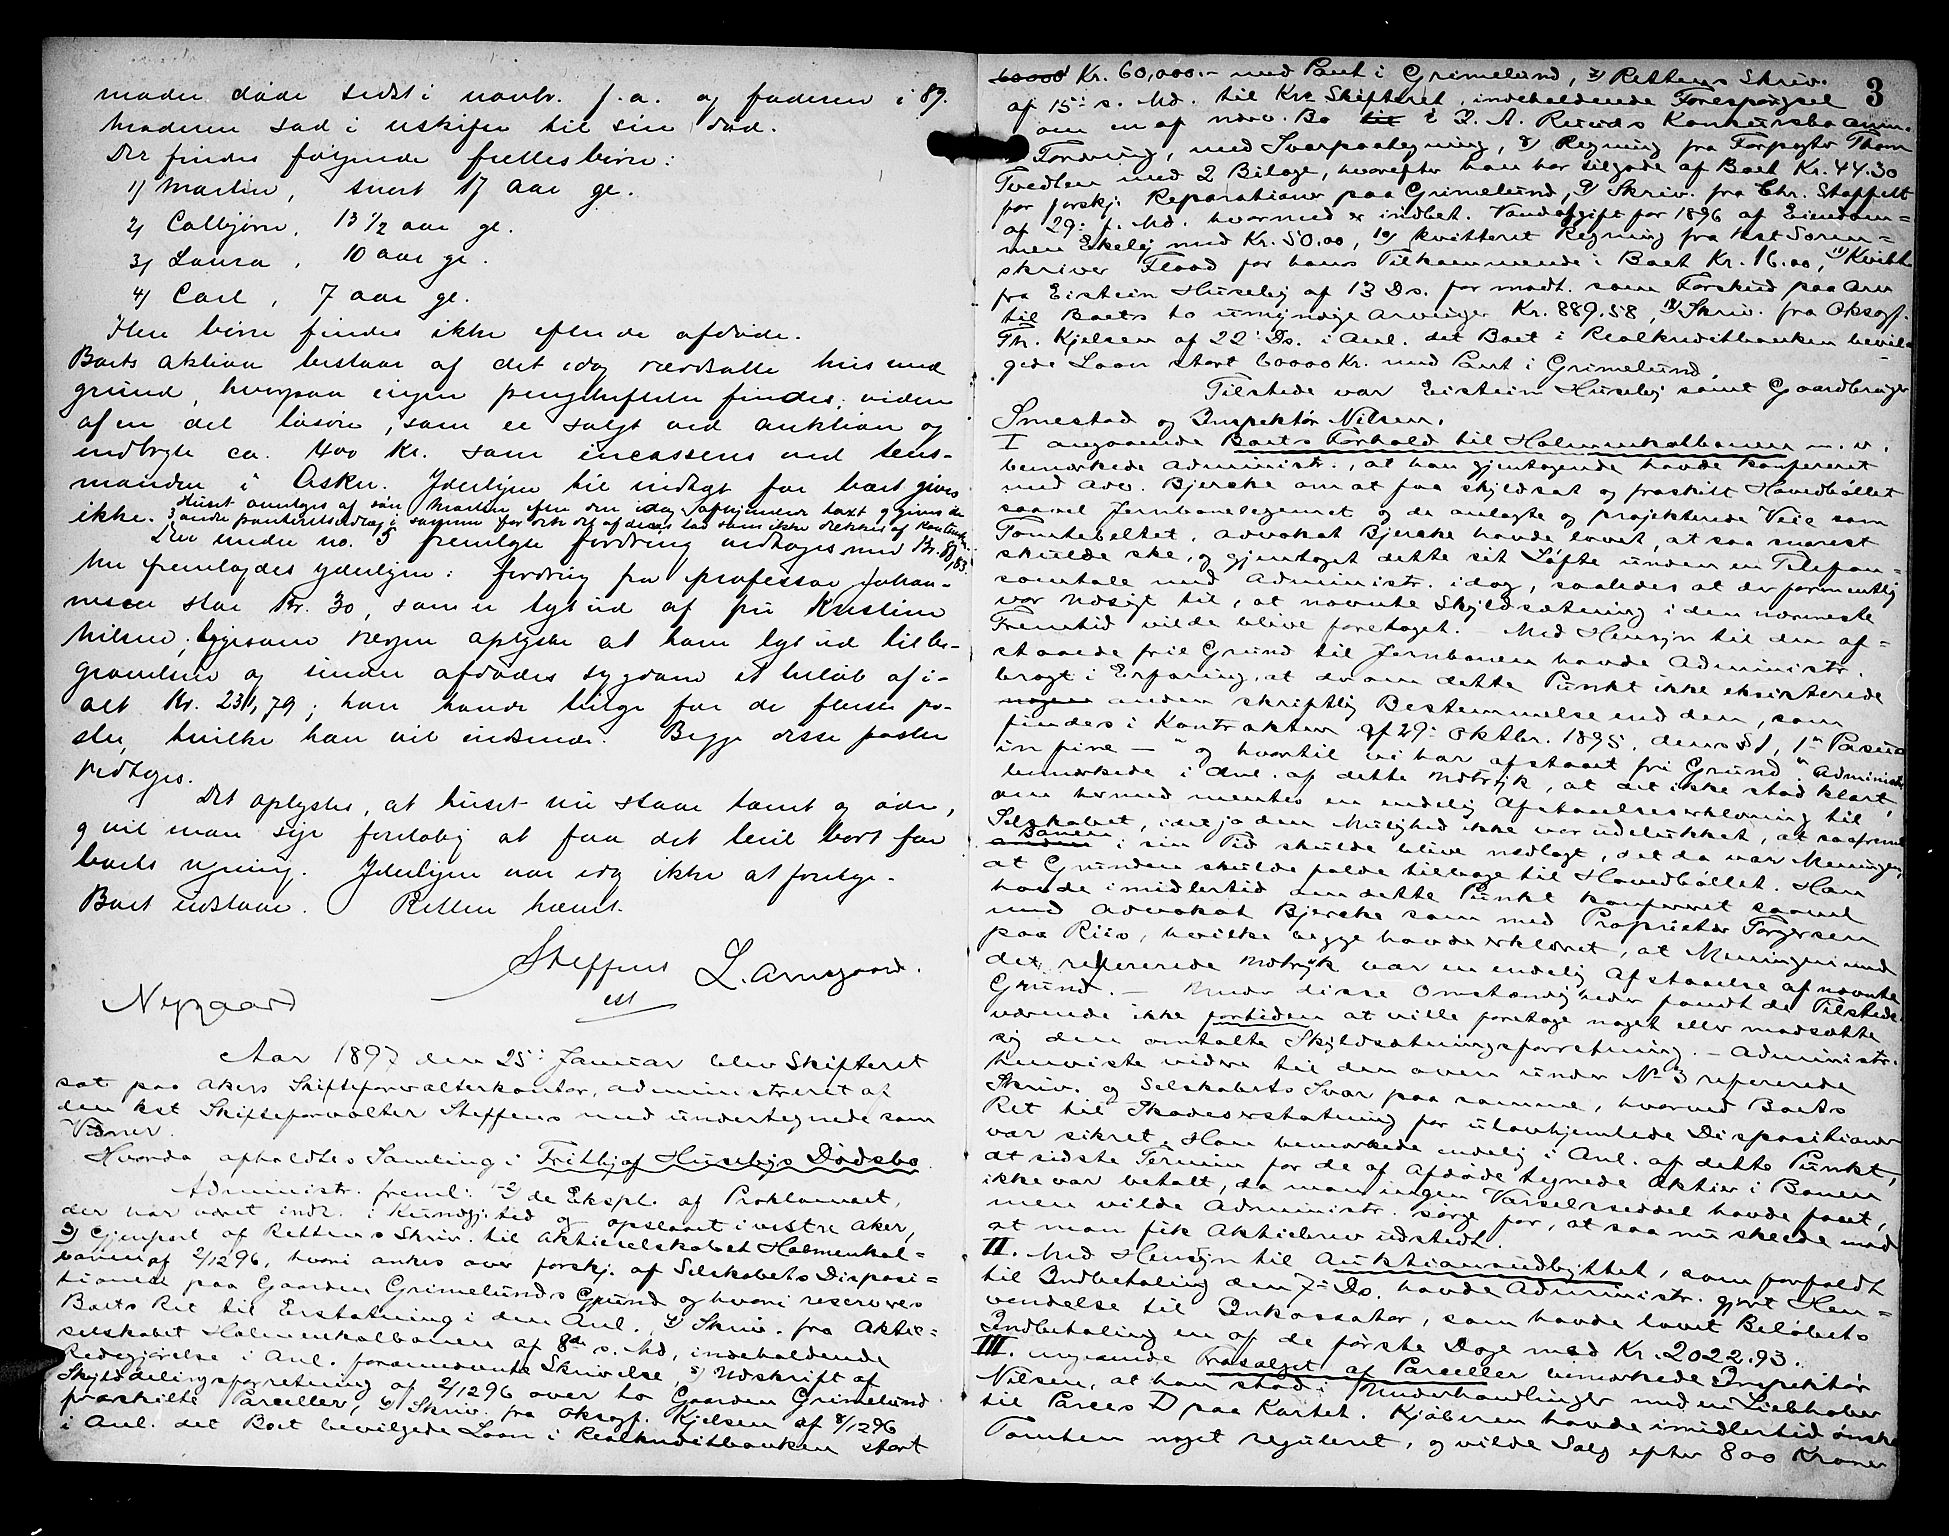 moder døde sidst i novbr. f.a. og faderen i 89.
Moderen sad i uskifte til sin død.
Der findes følgende fællesbørn:
1) Martin, snart 17 aar gl.
2) Colbjørn, 13 1/2 aar gl.
3) Laura, 10 aar gl.
4) Carl, 7 aar gl.
Flere børn findes ikke efter de afdøde.
Boets aktiva bestaar af det idag værdsatte hus med
grund, hvorpaa ingen penghefteler findes, viden
af en del løsøre, som er solgt ved auktion og
indbragte ca. 400 Kr. som incasseres ved lens-
manden i Asker. Yderligere til indtægt for boet gives
ikke. Huset overtages af søn Martin efter den idag afhjemlede taxt
Den under no. 5 fremlagte fordring vedtoges med Kr.
Nu fremlagdes yderligere: fordring fra professor Johan-
nesen stor Kr. 30, som er lagt ud af frk Kristine
Nilsen; ligesom værgen oplyste at have lagt ud til be-
gravelsen og under afdødes sygdom et beløb af i-
alt Kr. 231,79; han havde bilage for de fleste po-
ster, hvilke han vil indsende. Begge disse poster
vedtoges.
Det oplystes, at huset nu staar tomt og øde,
og vil man søge foreløbig at faa det leiet bort for
boets regning. Yderligere var idag ikke at foretage.
Boet udstaar. Retten hævet.
Steffens
cst
L. Arnegaard.
Nygaard
Aar 1897 den 25: Januar blev Skifteret
sat paa Akers Skifteforvalterkontor, administreret af
den kst Skifteforvalter Steffens med undertegnede som
Vidner.
Hvorda afholdtes Samling i Frithjof Husebys Dødsbo.
Administr. freml: 1-2) de Ekspl. af Proklamaet,
der har været indr. i Kundgj.tid og opslaaet i vestre Aker,
3) Gjenpart af Rettens Skriv. til Aktieselskabet Holmenkol-
banen af 2/12 96, hvori ankes over forskj. af Selskabets Disposi-
tioner paa Gaarden Grimelunds Grund og hvori reserveres
Boets Ret til Erstatning i den Anl. 4) Skriv. fra Aktie-
selskabet Holmenkolbanen af 8de s. Md, indeholdende
Redegjørelse i Anl. foranmeldte Skrivelse, 5) Udskrift af
Skylddelingsforretning af 2/12 96 over to Gaarden Grimelund
fraskilte Parceller, 6) Skriv. fra Oksagf. Kjelsen af 8/12 96
i Anl. det Boet bevilgede Laan i Realkreditbanken stort
3
60000 Kr. 60,000.- med Pant i Grimelund, 7) Rettens Skriv.
af 15: s. Md. til Kra Skifteret, indeholdende Forespørgsel
om en af nærv. Bo til i P. A. Ruuds Konkursbo anm.
Fordring, med Svarpaategning, 8) Regning fra Forpagter Thom
Tvedten med 2 Bilage, hvorefter han har tilgode af Boet Kr. 44.30
for forskj. Reparationer paa Grimelund, 9) Skriv. fra Chr. Staffelt
af 29: f. Md. hvormed er indbet. Vandafgift for 1896 af Eiendom-
men Ekely med Kr. 50.00, 10) kvitteret Regning fra kst Soren-
skriver Flood for hans Tilkommende i Boet Kr. 16.00, 11) Kvitt.
fra Eistein Huseby af 13 Ds. for modt. som Forskud paa Arv
til Boets to umyndige Arvinger Kr. 889.58, 12) Skriv. fra Oksagf.
Th. Kjelsen af 22: Ds. i Anl. det Boet i Realkreditbanken bevil-
gede Laan stort 60000 Kr. med Pant i Grimelund.
Tilstede var Eistein Huseby samt Gaardbruger
Smestad og Inspektør Nilsen.
I angaaende Boets Forhold til Holmenkolbanen m. v.
bemærkede Administr., at han gjentagende havde konfereret
med Adv. Bjerke om at faa skyldsat og fraskilt Hovedbøllet
saavel Jernbanelegemet og de anlagte og projekterede Veie som
Tomtebeltet. Advokat Bjerke havde lovet, at saa snarest
skulde ske, og gjentaget dette sit Løfte under en Telefon-
samtale med Administr. idag, saaledes at der formentlig
var Udsigt til, at nævnte Skyldsætning i den nærmeste
Fremtid vilde blive foretaget. – Med Hensyn til den af-
staaede frie Grund til Jernbanen havde Administr.
bragt i Erfaring, at der om dette Punkt ikke eksisterede
nogen anden skriftlig Bestemmelse end den, som
findes i Kontrakten af 29: Oktbr. 1895, dens § 1, 1ste Passus
in fine – "og hvortil vi har afstaaet fri Grund". Administr.
bemærkede i Anl. af dette Udtryk, at det ikke stod klart,
om hermed mentes en endelig Afstaaelseserklæring til
Selskabet, idet jo den Mulighed ikke var udelukket, at saafremt
Banen i sin Tid skulde blive nedlagt, det da var Meningen,
at Grunden skulde falde tilbage til Hovedbøllet. Han
havde imidlertid om dette Punkt konfereret saavel
med Advokat Bjerke som med Proprietær Torgersen
paa Riis, hvilke begge havde erklæret, at Meningen med
det refererede Udtryk var en endelig Afstaaelse af nævnte
Grund. – Under disse Omstændigheder fandt de Tilstede-
værende ikke fortiden at ville foretage noget eller modsætte
sig den omtalte Skyldsætningsforretning. – Administr.
henviste videre til den oven under No 3 refererede
Skriv. og Selskabets Svar paa samme, hvorved Boets
Ret til Skadeserstatning for uhjemlede Dispositioner
var sikret. Han bemærkede endelig i Anl. af dette Punkt,
at sidste Termin for de af Afdøde tegnede Aktier i Banen
ikke var betalt, da man ingen Varselsseddel havde faaet,
men vilde Administr. sørge for, at saa nu skeede mod
at man fik Aktiebrev udstedt.
II. Med Hensyn til Auktionsudbyttet, som forfaldt
til Indbetaling den 7: Ds. havde Administr. gjort Hen-
vendelse til Inkassator, som havde lovet Beløbets
Indbetaling en af de første Dage med Kr. 2022.93.
III. angaaende Frasalget af Parceller bemærkede Inspektør
Nilsen, at han stod i Underhandlinger med en Liebhaber
til Parcel D paa Kartet. Kjøberen havde imidlertid ønsket
Tomten noget reguleret, og vilde Salg efter 800 Kroner